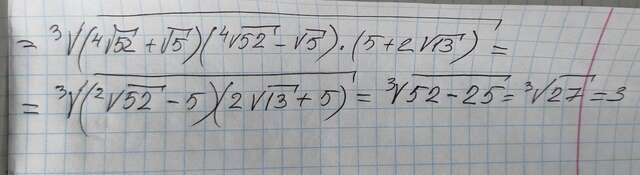 = ³√((⁴√52 + √5)(⁴√52 - √5)·(5 + 2√13)) =
= ³√((²√52 - 5)(2√13 + 5)) = ³√(52 - 25) = ³√27 = 3